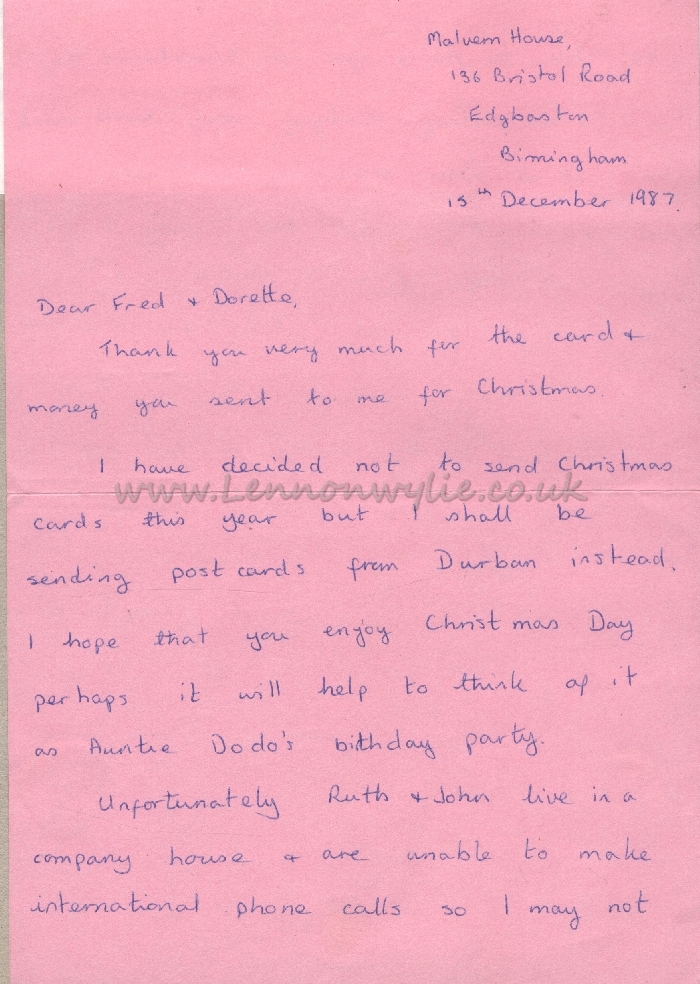 Malvern House,
136 Bristol Road
Edgbaston
Birmingham
15th December 1987.
Dear Fred & Dorette,
Thank you very much for the card &
money you sent to me for Christmas.
I have decided not to send Christmas
www.Lennonwylie.co.uk
cards this year but I shall be
sending postcards from Durban instead.
I hope that you enjoy Christmas Day
perhaps it will help to think of it
as Auntie Dodo's birthday party.
Unfortunately Ruth & John live in a
company house & are unable to make
international phone calls so I may not